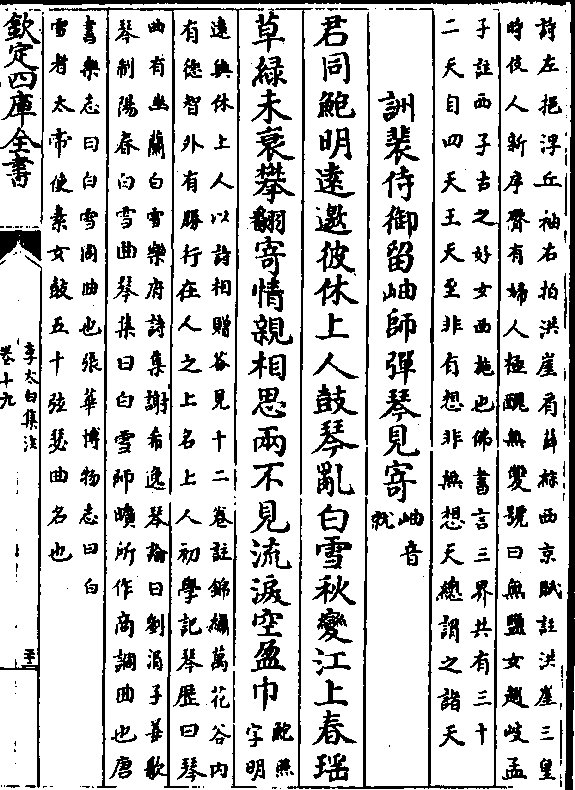 詩左挹浮丘袖右拍洪崖肩薛綜西京賦註洪崖三皇
時伎人新序齊有婦人極醜無雙號曰無鹽女趙岐孟
子註西子古之好女西施也佛書言三界共有三十
二天自四天王天至非有想非無想天總謂之諸天
訓裴侍御留岫師彈琴見寄
岫音
就
君同鮑明遠邀彼休上人鼓琴亂白雪秋變江上春瑶
草緑未衰攀翻寄情親相思兩不見流淚空盈巾
鮑照
字明
遠與休上人以詩相贈荅見十二卷註錦繡萬花谷内
有德智外有勝行在人之上名上人初學記琴歴曰琴
曲有幽蘭白雪樂府詩集謝希逸琴論曰劉涓子善歌
琴制陽春白雪曲琴集曰白雪師曠所作商調曲也唐
書樂志曰白雪周曲也張華博物志曰白
雪者太帝使素女鼓五十弦瑟曲名也
欽定四庫全書
李太白集注
卷十九